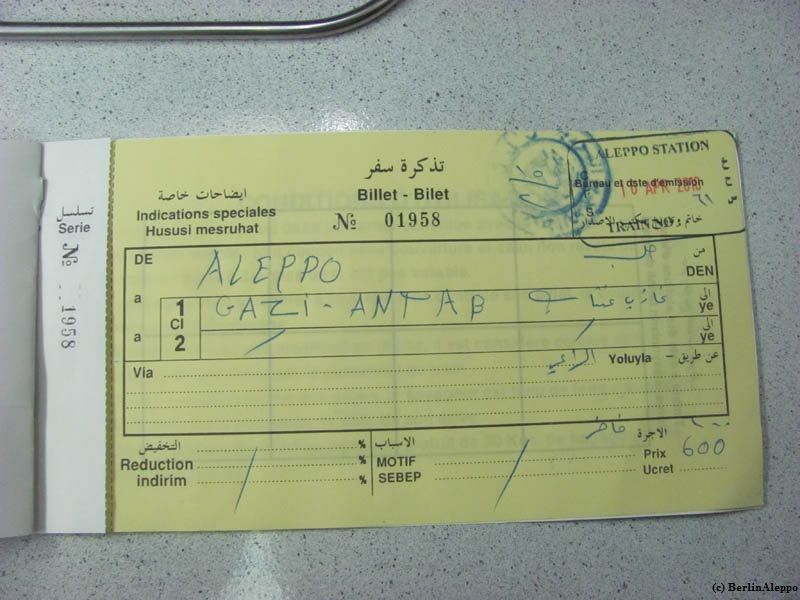 تسلسل
Serie
№
1958
تذكرة سفر
Billet - Bilet
№ 01958
ايضاحات خاصة
Indications speciales
Hususi mesruhat
ALEPPO STATION
Bureau et date d'émission
10 APR 2010
TRAIN NO
DE ALEPPO حلب من
DEN
a 1 GAZi - ANTAB غازي عنتاب الى
ye
Cl
a 2 / / الى
ye
Via الراعي Yoluyla عن طريق -
التخفيض %
Reduction / %
indirim %
الاسباب
MOTIF /
SEBEP
الاجرة ٦٠٠
Prix 600
Ucret
(c) BerlinAleppo